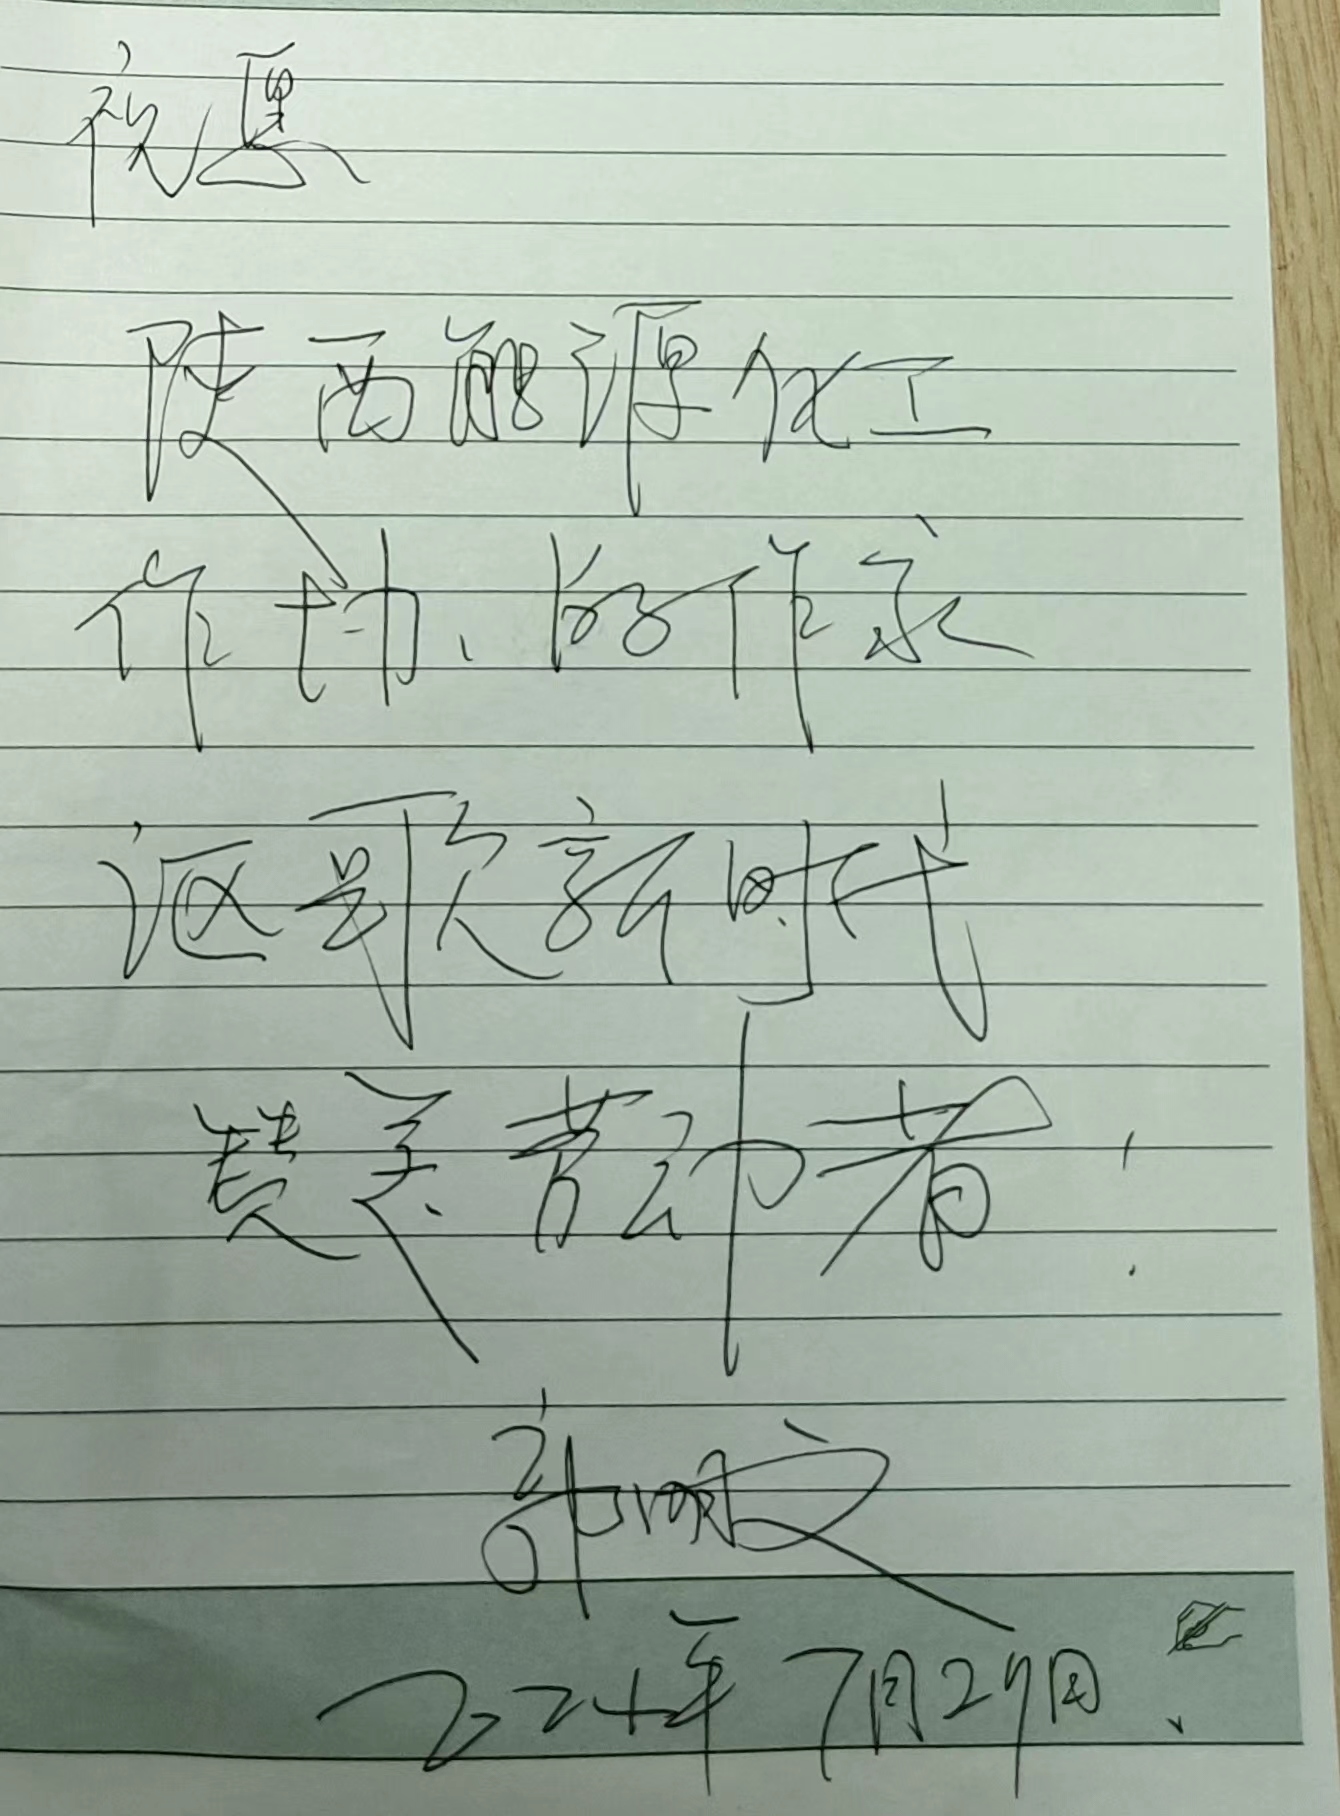 祝愿
陕西能源化工
作协、好作家
讴歌新时代
赞美劳动者!
文
2024年7月29日